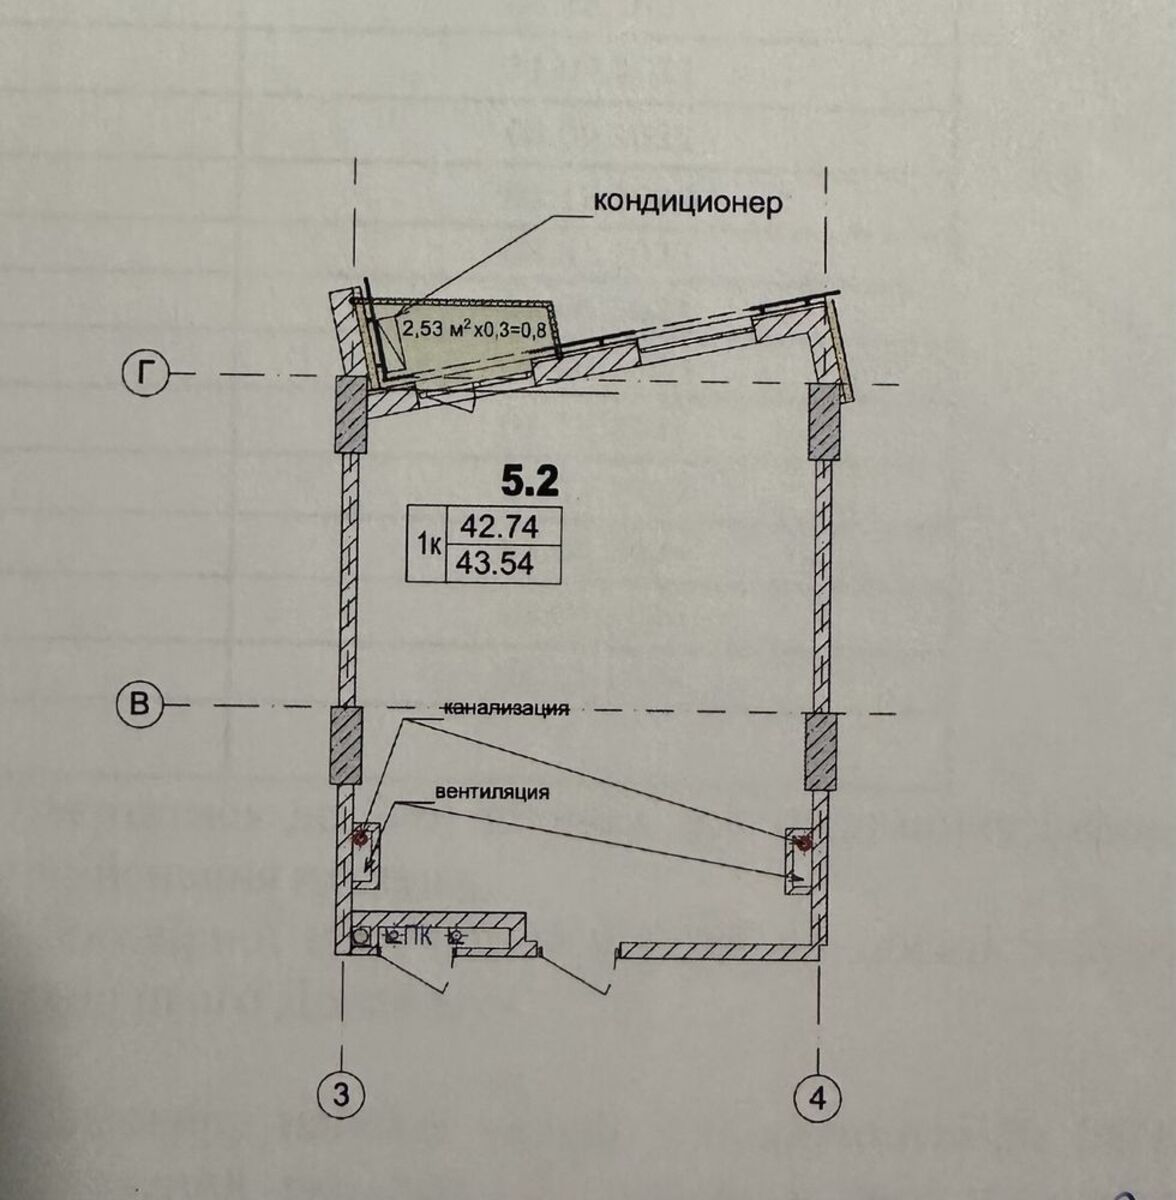 кондиционер
2,53 м²х0,3=0,8
Г
5.2
1к
42.74
43.54
В
канализация
вентиляция
ПК
3
4